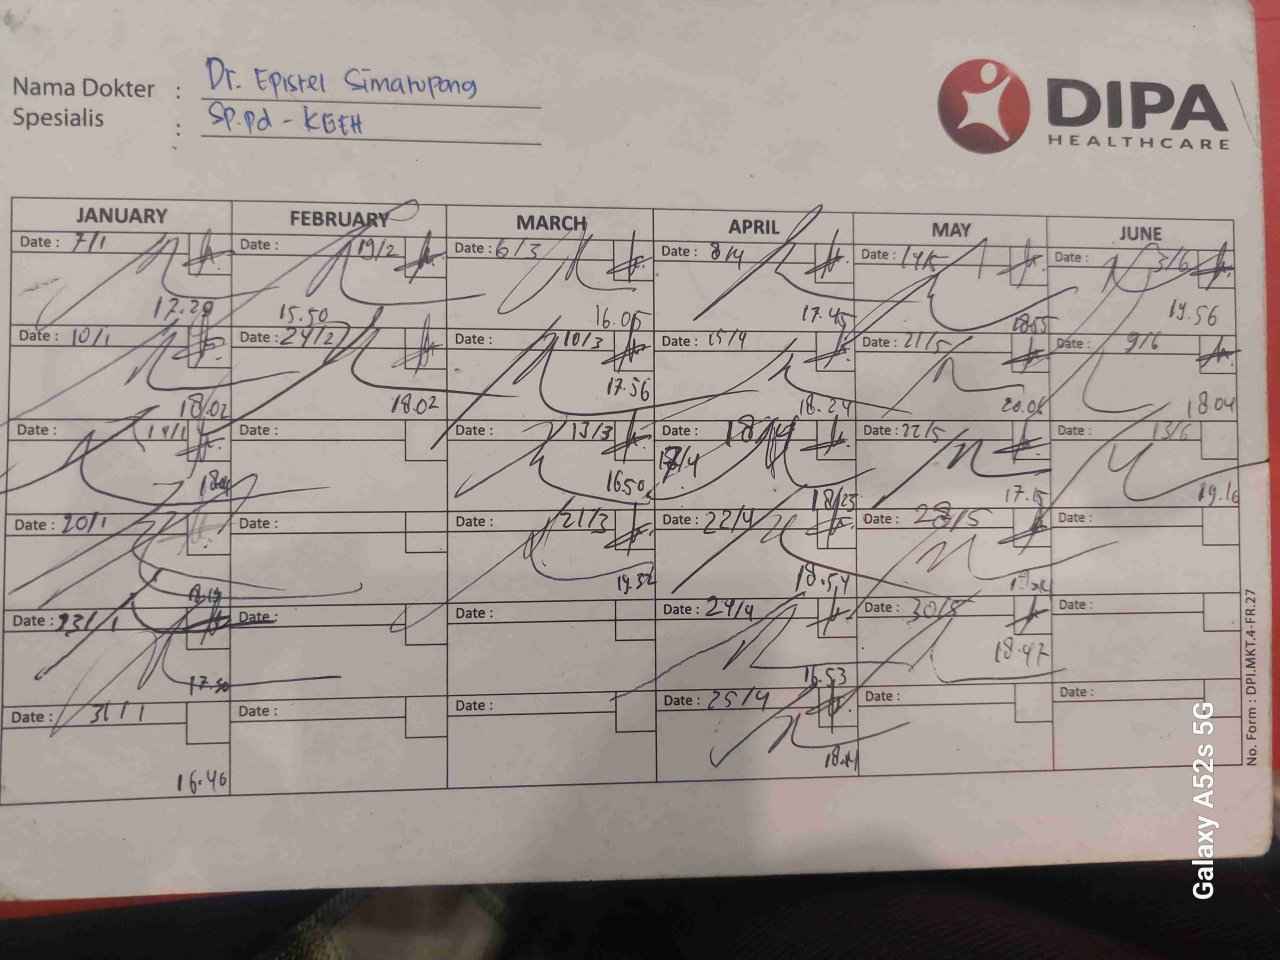 Nama Dokter : Dr. Epistel Simatupang
Spesialis : Sp.pd - KGEH
DIPA
HEALTHCARE
JANUARY FEBRUARY MARCH APRIL MAY JUNE
Date : 7/1 Date : 19/2 Date : 6/3 Date : 8/4 Date : Date : 3/6
17.29 15.50 16.05 17.45 18.55 19.56
Date : 10/1 Date : 24/2 Date : 10/3 Date : 15/4 Date : 21/5 Date : 9/6
18.02 18.02 17.56 18.24 20.06 18.04
Date : Date : Date : 13/3 Date : 18/4 Date : 22/5 Date : 13/6
16.50 18.25 17.15 19.16
Date : 20/1 Date : Date : 21/3 Date : 22/4 Date : 28/5 Date :
19.52 18.54
Date : 23/1 Date : Date : Date : 24/4 Date : 30/5 Date :
17.50 16.53 18.47
Date : 31/1 Date : Date : Date : 25/4 Date : Date :
16.46
No. Form : DPI.MKT.4-FR.27
Galaxy A52s 5G